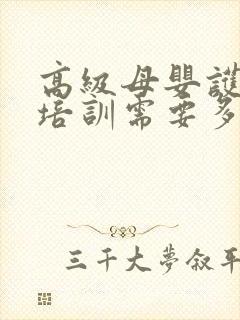 高級母嬰護
培訓需要多
三千大夢叙平